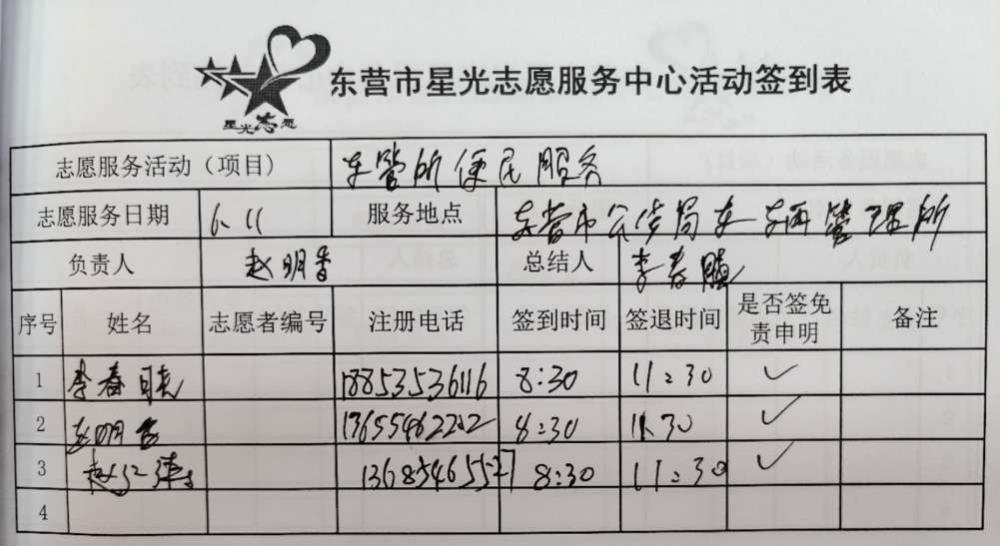 星光志愿
东营市星光志愿服务中心活动签到表
志愿服务活动（项目） 车管所便民服务
志愿服务日期 6.11 服务地点 东营市公安局车辆管理所
负责人 赵明香 总结人 李春
序号 姓名 志愿者编号 注册电话 签到时间 签退时间 是否签免责申明 备注
1 李春 18853536116 8:30 11:30 ✓
2 赵明香 13655462222 8:30 11:30 ✓
3 赵 13685465527 8:30 11:30 ✓
4